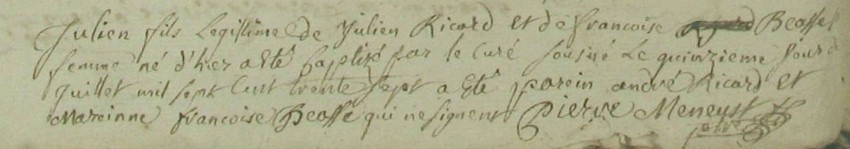 Julien fils Legittime de Julien Ricard et de francoise Beasse
femme né d'hier a Eté baptisé par le Curé sousiné Le quinzieme Jour d
Juillet mil sept Cent trente sept a Eté parein andré Ricard et
Mareinne francoise Beasse qui ne signent Pierre Meneust